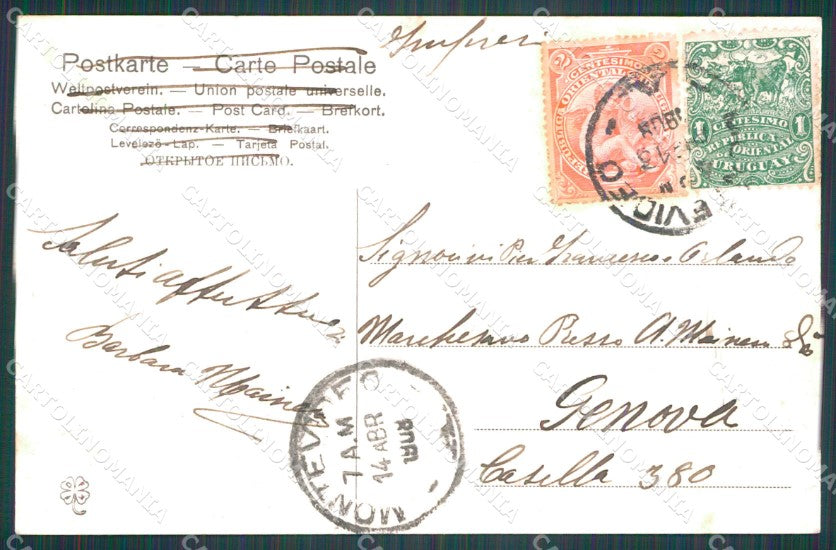 Postkarte — Carte Postale
Weltpostverein. — Union postale universelle.
Cartolina Postale. — Post Card. — Brefkort.
Correspondenz-Karte. — Briefkaart.
Levelező-Lap. — Tarjeta Postal.
ОТКРЫТОЕ ПИСЬМО.
2 CENTESIMOS 2
1 CENTESIMO 1
REPUBLICA
ORIENTAL
URUGUAY
EVIDEO
Saluti affettuosi
Barbara
Signorini Pier Francesco e Orlando
Marchesano Presso A.
Genova
Casella 380
MONTEVIDEO
7 A.M
14 ABR
CARTOLINOMANIA